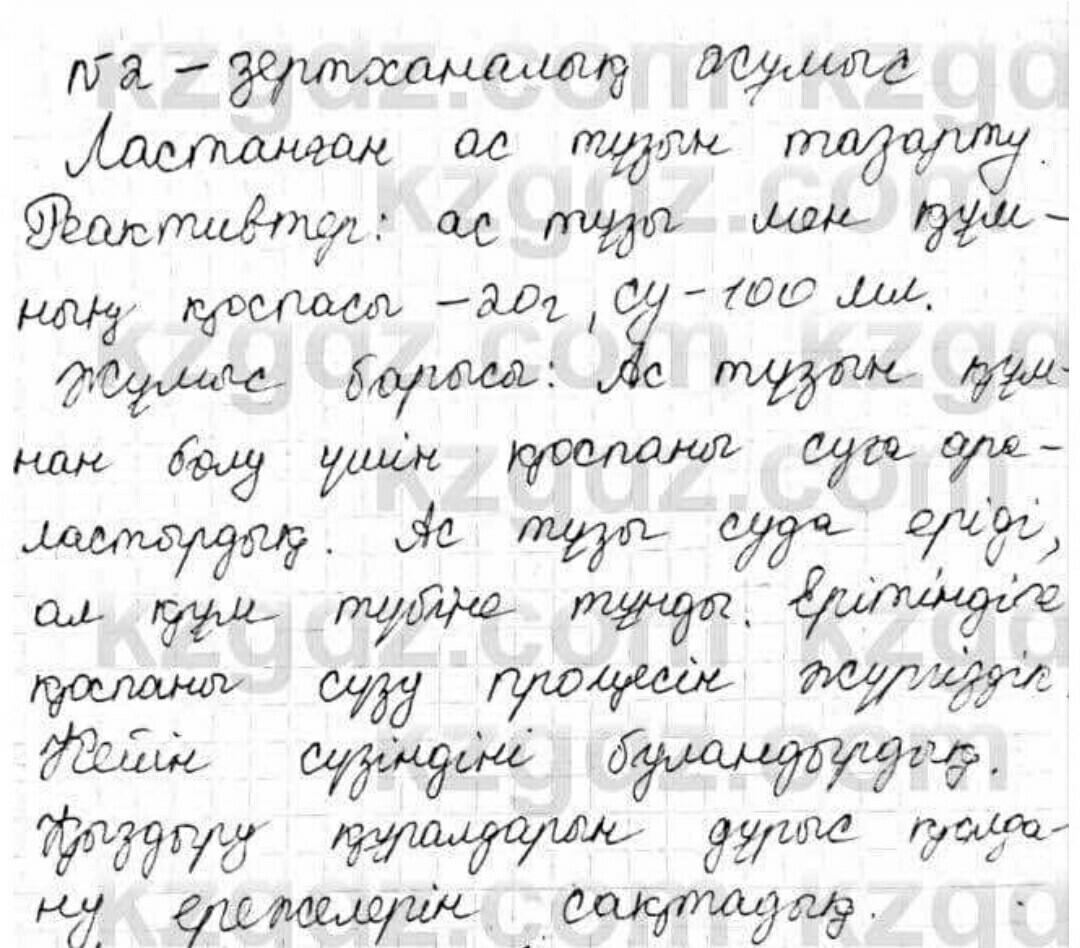 №2 – зертханалық жұмыс
Ластанған ас тұзын тазарту.
Реактивтер: ас тұзы мен құм-
ның қоспасы – 20г, су – 100 мл.
Жұмыс барысы: Ас тұзын құм-
нан бөлу үшін қоспаны суға ара-
ластырдық. Ас тұзы суда еріді,
ал құм түбіне тұнды. Ерітіндіге
қоспаны сүзу процесін жүргіздік.
Кейін сүзіндіні буландырдық.
Қыздыру құралдарын дұрыс қолда-
ну ережелерін сақтадық.
kzgdz.com